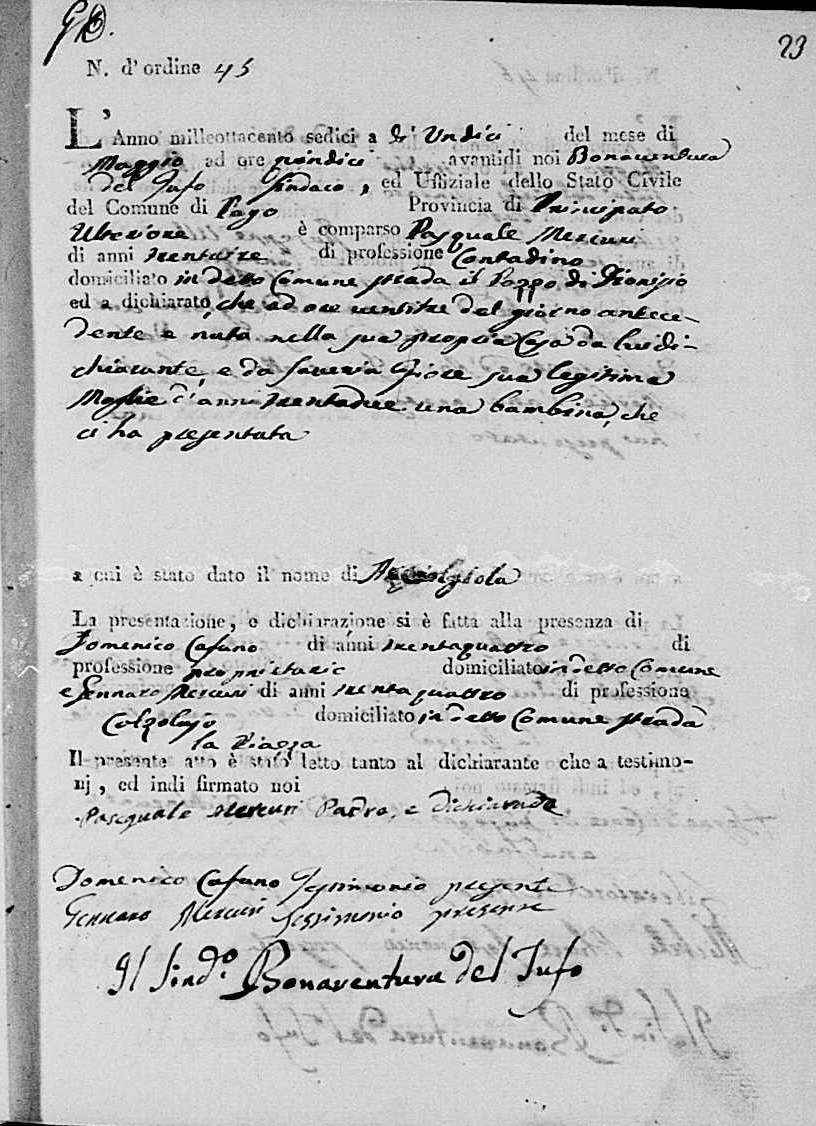 23
N. d'ordine 45
L'Anno milleottocento sedici a dì Undici del mese di
Maggio ad ore quindici avantidi noi Bonaventura
del Tufo Sindaco, ed Uffiziale dello Stato Civile
del Comune di Pago Provincia di Principato
Ulteriore è comparso Pasquale Mercuri
di anni trentatre di professione Contadino
domiciliato in detto Comune strada il Pozzo di Dionisio
ed a dichiarato, che ad ore ventitre del giorno antece-
dente è nata nella sua propria Casa da lui di-
chiarante, e da Saveria Fiore sua legitima
Moglie d'anni trentadue una bambina, che
ci ha presentata
a cui è stato dato il nome di
La presentazione, e dichiarazione si è fatta alla presenza di
Domenico Cafano di anni trentaquattro di
professione proprietario domiciliato in detto Comune
e Gennaro Mercuri di anni trentaquattro di professione
Calzolajo domiciliato in detto Comune strada
la Piazza
Il presente atto è stato letto tanto al dichiarante che a testimo-
nj, ed indi firmato noi
Pasquale Mercuri Padre, e dichiarante
Domenico Cafano Testimonio presente
Gennaro Mercuri Testimonio presente
Il Sind.o Bonaventura del Tufo